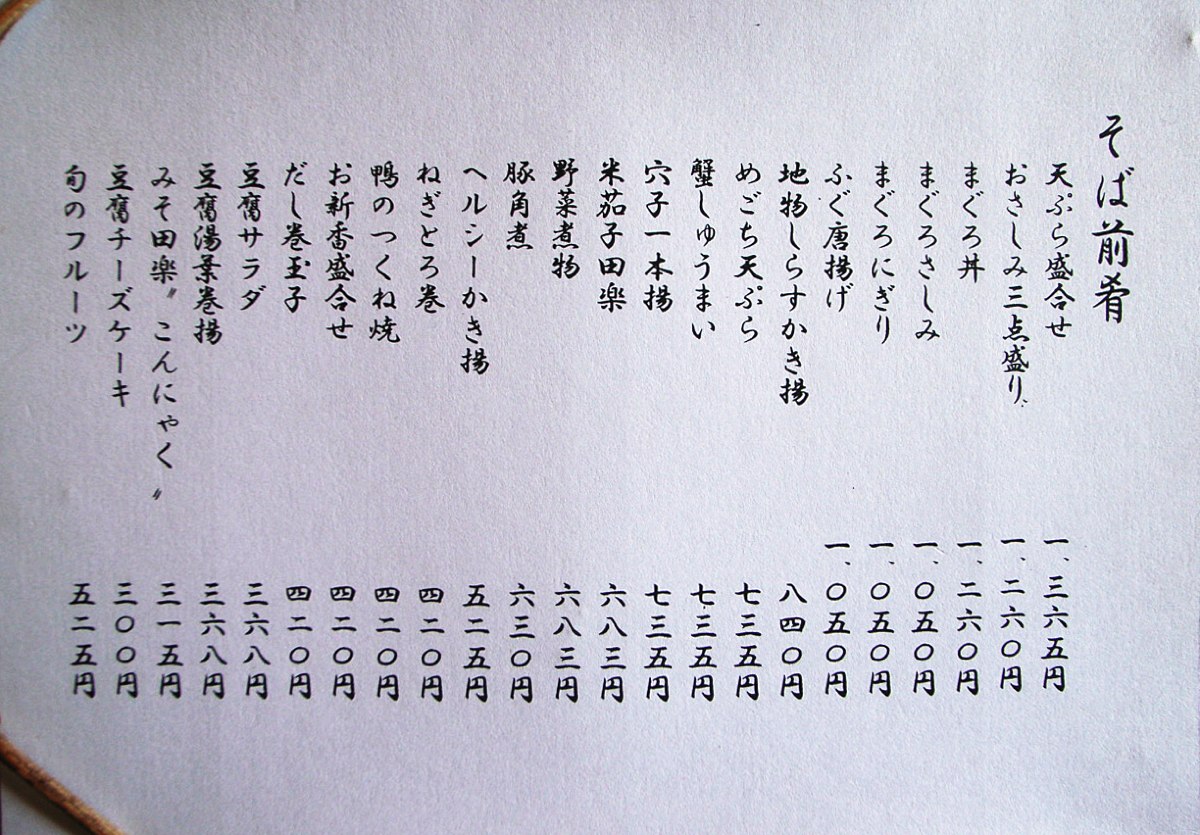 そば前肴
天ぷら盛合せ 一、三六五円
おさしみ三点盛り、 一、二六〇円
まぐろ丼 一、二六〇円
まぐろさしみ 一、〇五〇円
まぐろにぎり 一、〇五〇円
ふぐ唐揚げ 一、〇五〇円
地物しらすかき揚 八四〇円
めごち天ぷら 七三五円
蟹しゅうまい 七三五円
穴子一本揚 七三五円
米茄子田楽 六八三円
野菜煮物 六八三円
豚角煮 六三〇円
ヘルシーかき揚 五二五円
ねぎとろ巻 四二〇円
鴨のつくね焼 四二〇円
お新香盛合せ 四二〇円
だし巻玉子 四二〇円
豆腐サラダ 三六八円
豆腐湯葉巻揚 三六八円
みそ田楽〝こんにゃく〟 三一五円
豆腐チーズケーキ 三〇〇円
旬のフルーツ 五二五円